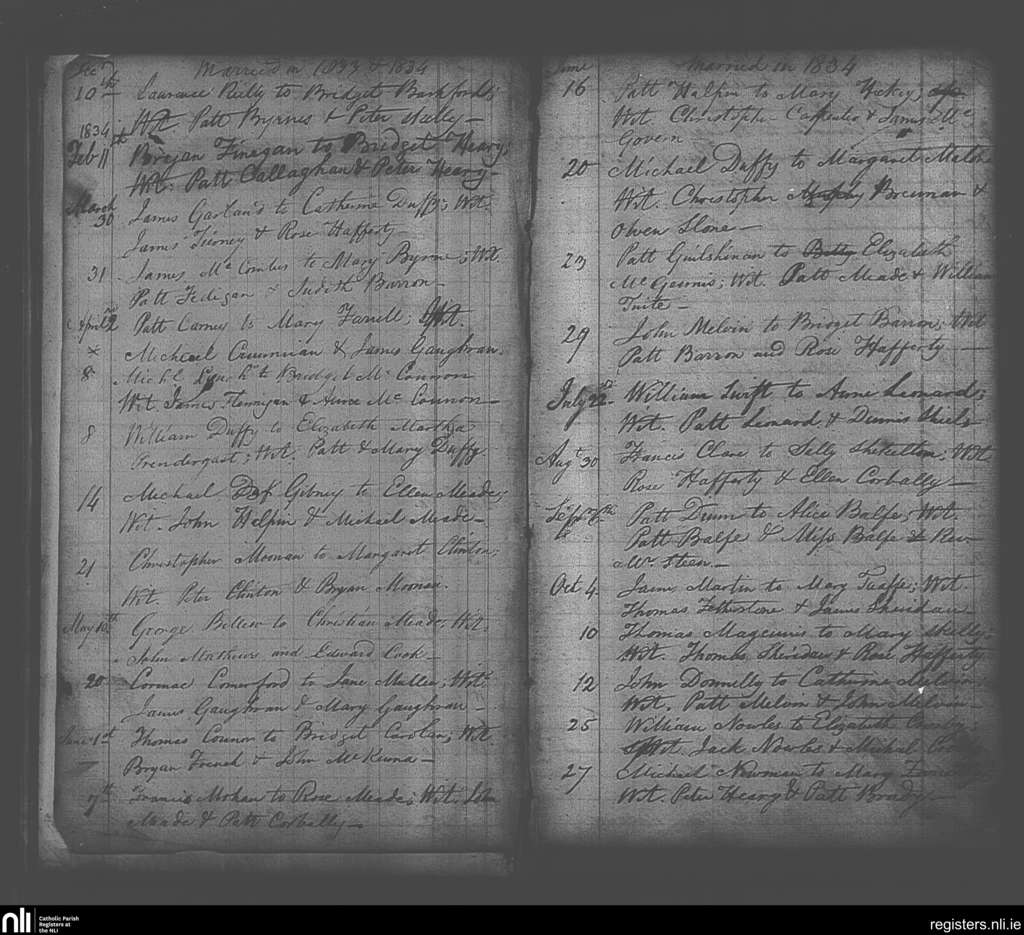 Married in 1833 & 1834
10th Laurence Reilly to Bridget
Wit. Patt Byrnes & Peter
1834
Feb 11th Bryan Finegan to Bridget Heary;
Wit. Patt Callaghan & Peter Heary—
March
30 James Garland to Catherine Duffy; Wit.
James & Rose Hafferty—
31 James McCombes to Mary Byrne; Wit.
Patt Fedigan & Judith Barron—
April 2nd Patt Carney to Mary Farrell; Wit.
Micheal & James Gaughran.
8 Michl Lynch to Bridget McConnon
Wit. James Flannigan & Anne McConnon—
8 William Duffy to Elizabeth Martha
Prendergast; Wit. Patt & Mary Duffy
14 Michael Gibney to Ellen Meade;
Wit. John Halpin & Michael Meade—
21 Christopher Moonan to Margaret Clinton;
Wit. Peter Clinton & Bryan Moonan.
May 10th George Bellew to Christian Meade; Wit.
John Mathews and Edward Cook—
20 Cormac Comerford to Jane Mullen; Wit.
James Gaughran & Mary Gaughran—
June 1st Thomas Connor to Bridget Carolan; Wit.
Bryan French & John McKenna—
7th Francis Mohan to Rose Meade; Wit. John
Meade & Patt Corbally—
June Married in 1834
16 Patt Halpin to Mary
Wit. Christopher Carpenter & James Mc
Govern
20 Michael Duffy to Margaret
Wit. Christopher Brennan &
Owen Slone—
23 Patt Guilshinan to Betty Elizabeth
McGennis; Wit. Patt Meade & William
Tuite—
29 John Melvin to Bridget Barron; Wit
Patt Barron and Rose Hafferty—
July 22d William Swift to Anne Leonard;
Wit. Patt Leonard & Dennis
Augt 30 Francis Clare to Shekelton; Wit
Rose Hafferty & Ellen Corbally—
Sept Patt Dunn to Alice Balfe; Wit.
Patt Balfe & Miss Balfe & Rev.
Mr. Steen—
Oct 4 James Martin to Mary Taaffe; Wit.
Thomas Fetherstone & James Sheridan—
10 Thomas Magennis to Mary Skelly—
Wit. Thomas Sheridan & Rose Hafferty
12 John Donnelly to Catherine Melvin
Wit. Patt Melvin & John Melvin—
25 William Nowles to Elizabeth
Wit. Jack Nowles & Michael
27 Michael Newman to Mary
Wit. Peter Heary & Patt Brady—
nli
Catholic Parish
Registers at
the NLI
registers.nli.ie